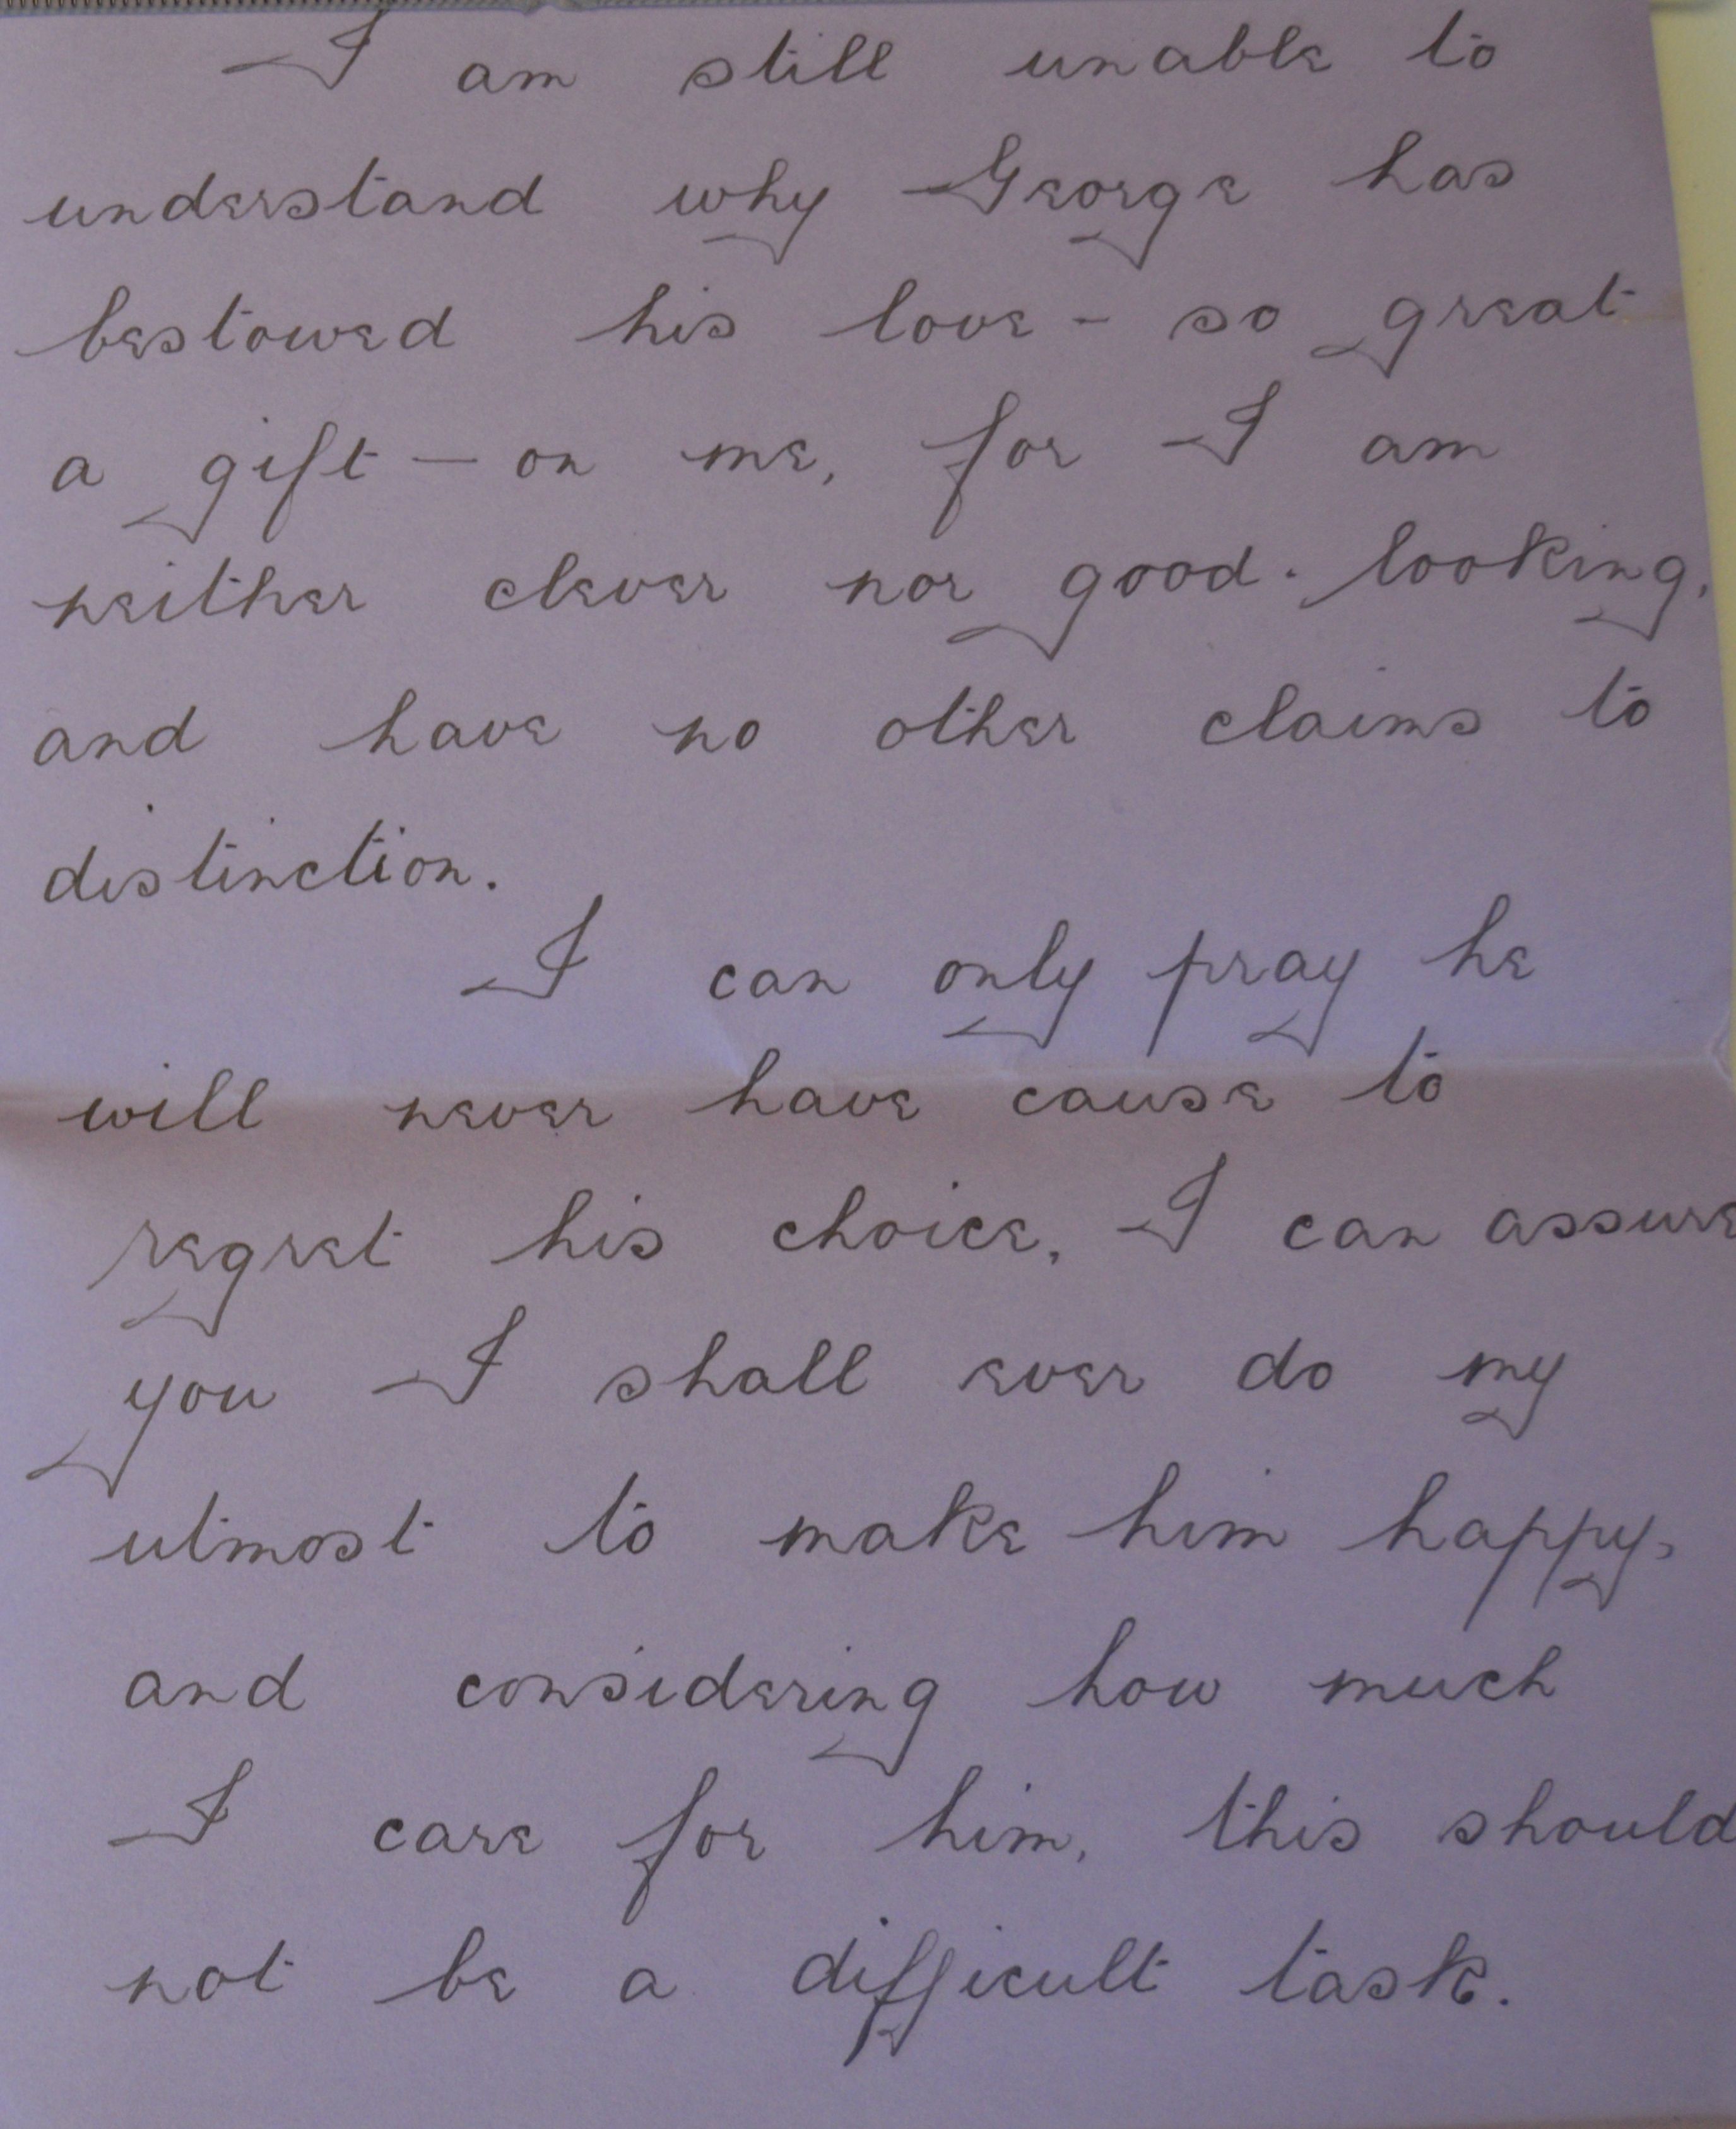 I am still unable to
understand why George has
bestowed his love - so great
a gift — on me, for I am
neither clever nor good-looking,
and have no other claims to
distinction.
I can only pray he
will never have cause to
regret his choice, I can assure
you I shall ever do my
utmost to make him happy,
and considering how much
I care for him, this should
not be a difficult task.